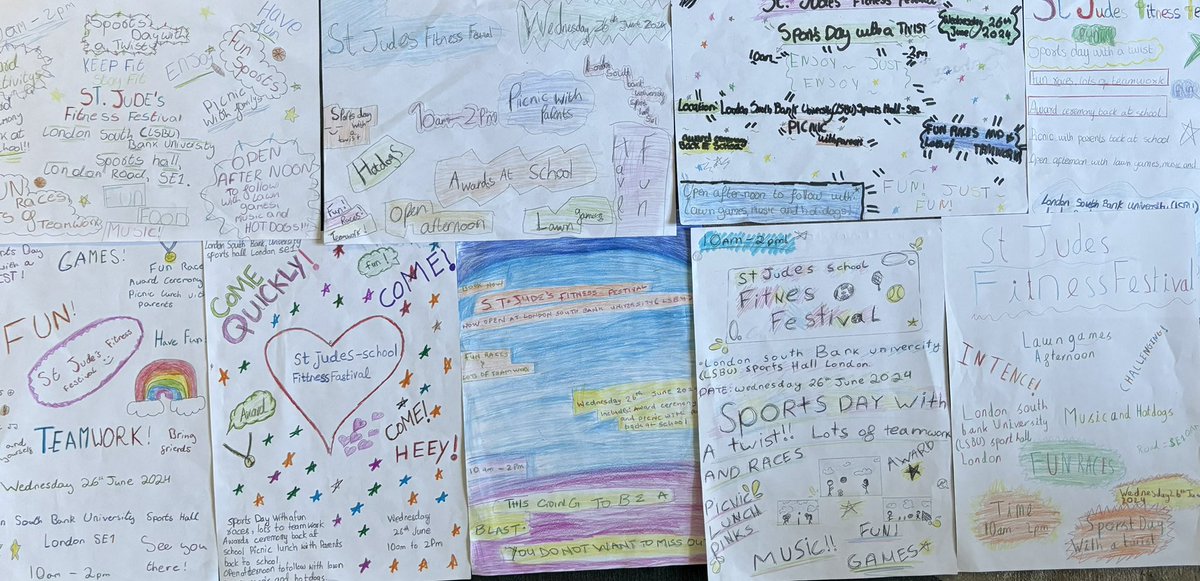 10am - 2pm
Sports
Day with
a Twist
KEEP Fit
Stay Fit
ENJOY
Have
fun
Fun
Sports
Picnic
with family
ST. JUDE'S
Fitness Festival
London South (LSBU)
Bank University
Sports hall,
London Road, SE1.
FUN
FOOD
MUSIC!
OPEN
AFTER NOON
To follow
with Lawn
games,
music and
HOT DOGS!!
RACES
of Teamwork
St Judes Fitness Festival
Wednesday 26th June 2024
Sports day
with a
twist
10am - 2pm
Picnic with
Parents
Hotdogs
Awards At School
Fun!
Races!
Teamwork!
Open
afternoon
Lawn
games
St. Judes Fitness Festival
Sports Day with a TWIST
Wednesday 26th
June 2024
10am - 2pm
ENJOY ~ JUST
ENJOY ~
Location: London South Bank University (LSBU) Sports Hall - SE1
Award ceremony
Back at School
PICNIC
with parents
FUN RACES AND
Lots of TEAMWORK
FUN! JUST
FUN!
Open afternoon to follow with
Lawn games, Music and hotdogs
St Judes Fitness Fe
Sports day with a twist
Fun races, lots of teamwork
Award ceremony back at school
Picnic with parents back at school
Open afternoon with lawn games, music and
London South Bank University (LSBU)
Sports Day
with a
GAMES!
Fun Race
Award Ceremony
Picnic lunch
parents
FUN!
St Jude's Fitness
Festival
Have Fun!
TEAMWORK!
Bring
friends
Wednesday 26th June 2024
South Bank University Sports Hall
London SE1
See you
there!
10am - 2pm
London South Bank, University
sports hall London SE1
COME
QUICKLY!
fun!
COME!
St Judes-school
Fittness Fastival
Award
COME!
HEEY!
Sports Day with a fun
races, lots to teamwork
Awards ceremony back at
school Picnic lunch with Parents
back to school
Open afternoon to follow with lawn
music and hotdogs
Wednesday
26th June
10am to 2pm
Book now
ST. JUDE'S FITNESS FESTIVAL
NOW OPEN AT LONDON SOUTH BANK UNIVERSITY (LSBU)
FUN RACES
&
LOTS OF TEAMWORK
Wednesday 26th June 2024
Included award ceremony
and picnic with
back at school
10 am - 2pm
THIS GOING TO BE A
BLAST.
YOU DO NOT WANT TO MISS OU
10am - 2pm
St Judes School
Fitnes
Festival
London south Bank univercity
(LSBU) sports Hall London.
DATE: wednesday 26th June 2024
SPORTS DAY WITH
A twist!! Lots of teamwork
AND RACES
AWARD
PICNIC
LUNCH
PINKS
MUSIC!!
FUN!
GAMES
St Judes
Fitness Festival
Lawn games
Afternoon
CHALLENGING!
INTENCE!
London south
bank University
(LSBU) sport hall
London
Music and Hotdogs
FUN RACES
Road - SE1 0AA
Wednesday 26th June
2024
Time
10am 2pm
Sporst Day
With a twist